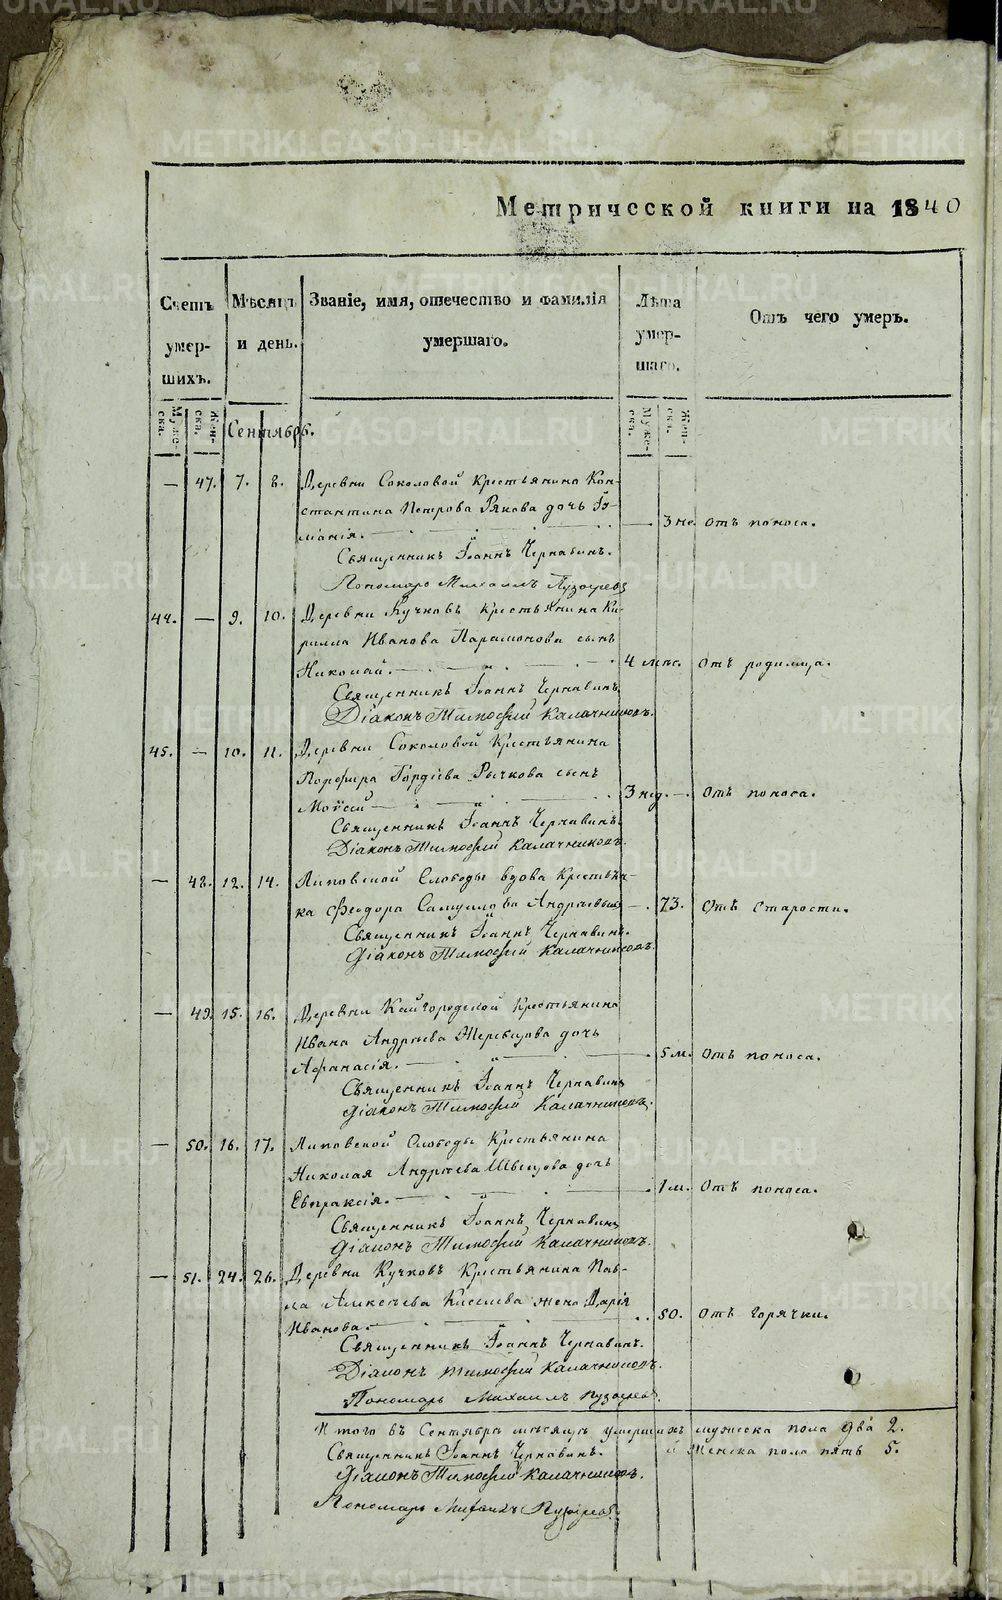 METRIKI.GASO-URAL.RU
Метрической книги на 1840
Счетъ умер- шихъ.
Мѣсяцъ и день.
Званіе, имя, отечество и фамилія умершаго.
Лѣта умер- шаго.
Отъ чего умеръ.
Муже- ска.
Жен- ска.
Муже- ска.
Жен- ска.
Сентябрь.
— 47. 7. 8. Деревни Соколовой Крестьянина Кон-
стантина Петрова Рякова дочь
— 3 не. отъ поноса.
Священникъ Іоаннъ Чернавинъ.
Пономарь Михаилъ Пузыревъ
44. — 9. 10. Деревни Кучковъ Крестьянина Ки-
рилла Иванова Парамонова сынъ
Николай. — 4 мѣс. отъ родимца.
Священникъ Іоаннъ Чернавинъ.
Діаконъ Тимофей Калачниковъ.
45. — 10. 11. Деревни Соколовой Крестьянина
Порфира Гордѣева Рычкова сынъ
Моѵсей — 3 нед. — отъ поноса.
Священникъ Іоаннъ Чернавинъ.
Діаконъ Тимофей Калачниковъ.
— 48. 12. 14. Липовской Слободы вдова Крестьян-
ка Феодора Самуилова Андреевыхъ — 73. отъ старости.
Священникъ Іоаннъ Чернавинъ.
Діаконъ Тимофей Калачниковъ.
— 49. 15. 16. Деревни Кайгородской Крестьянина
Ивана Андреева Жеребцова дочь
Афанасія. — 5 м. отъ поноса.
Священникъ Іоаннъ Чернавинъ
Діаконъ Тимофей Калачниковъ.
— 50. 16. 17. Липовской Слободы Крестьянина
Николая Андреева Швецова дочь
Евпраксія. — 1 м. отъ поноса.
Священникъ Іоаннъ Чернавинъ
Діаконъ Тимофей Калачниковъ.
— 51. 24. 26. Деревни Кучковъ Крестьянина Пав-
ла Алексѣева Киселева жена Дарія
Иванова. — 50. отъ горячки.
Священникъ Іоаннъ Чернавинъ.
Діаконъ Тимофей Калачниковъ.
Пономарь Михаилъ Пузыревъ.
Итого въ Сентябрѣ мѣсяцѣ умершихъ мужеска пола два 2.
Священникъ Іоаннъ Чернавинъ. и Женска пола пять 5.
Діаконъ Тимофей Калачниковъ.
Пономарь Михаилъ Пузыревъ.